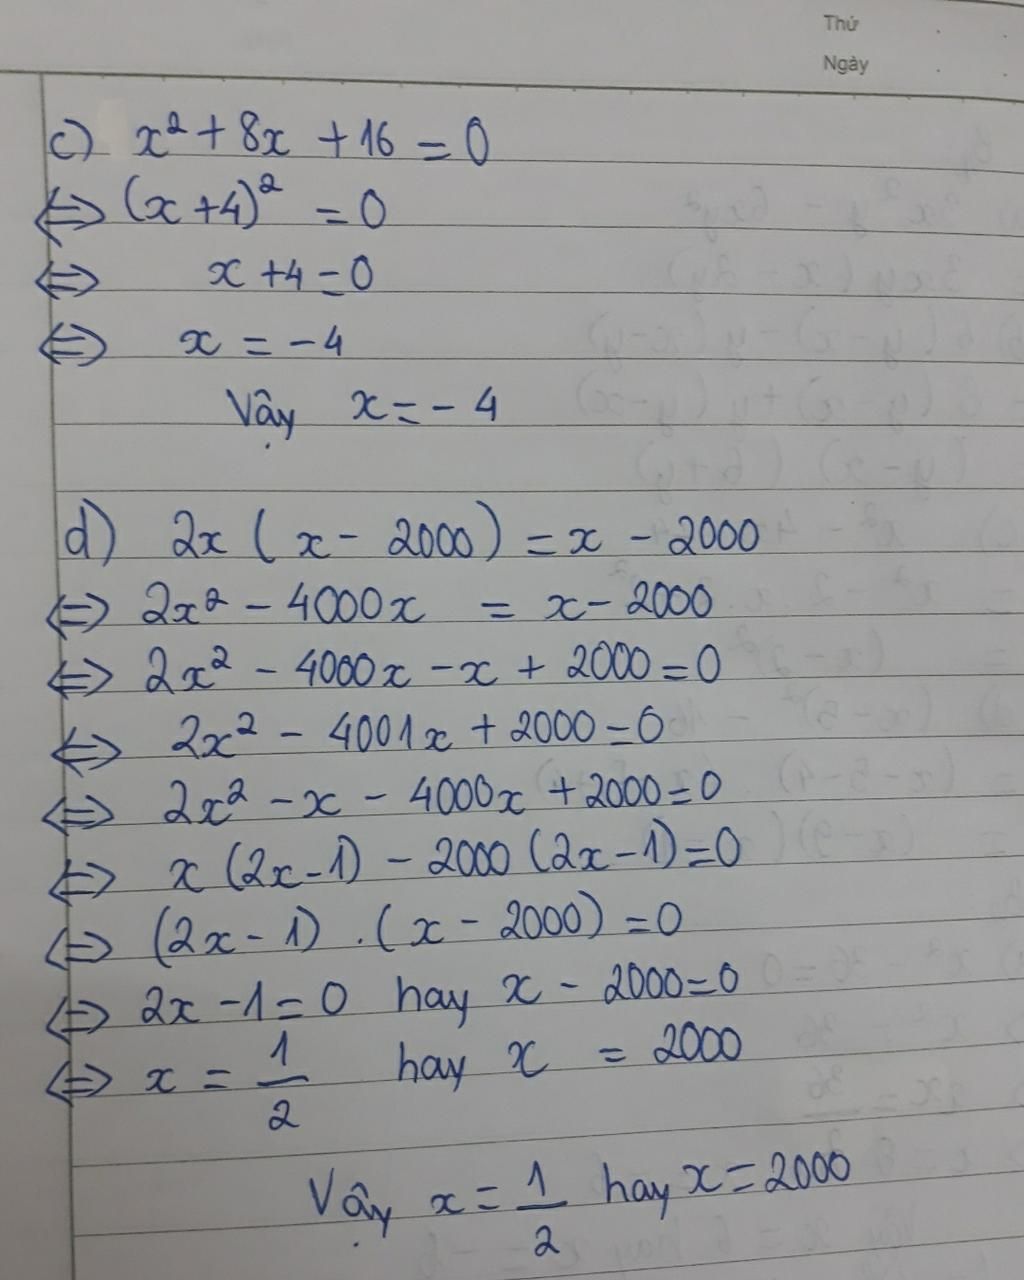 Thứ
Ngày
c) x² + 8x + 16 = 0
⇔ (x + 4)² = 0
⇔ x + 4 = 0
⇔ x = -4
Vậy x = -4
d) 2x ( x - 2000 ) = x - 2000
⇔ 2x² - 4000x = x - 2000
⇔ 2x² - 4000x - x + 2000 = 0
⇔ 2x² - 4001x + 2000 = 0
⇔ 2x² - x - 4000x + 2000 = 0
⇔ x (2x - 1) - 2000 (2x - 1) = 0
⇔ (2x - 1) . ( x - 2000) = 0
⇔ 2x - 1 = 0 hay x - 2000 = 0
⇔ x = 1/2 hay x = 2000
Vậy x = 1/2 hay x = 2000